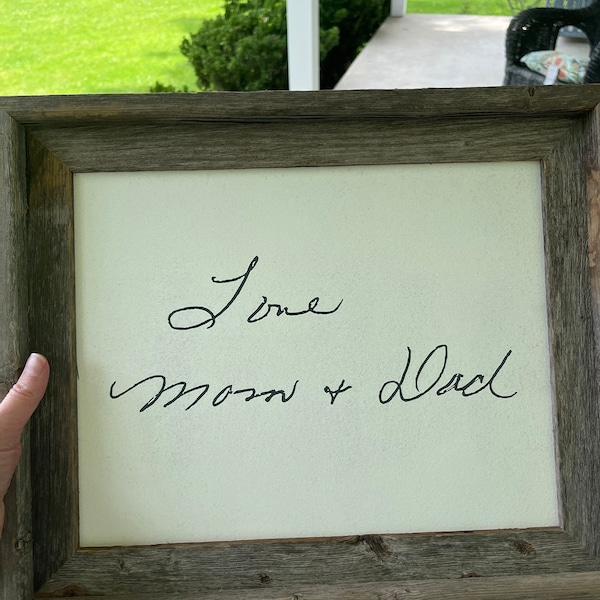 Love
Mom + Dad